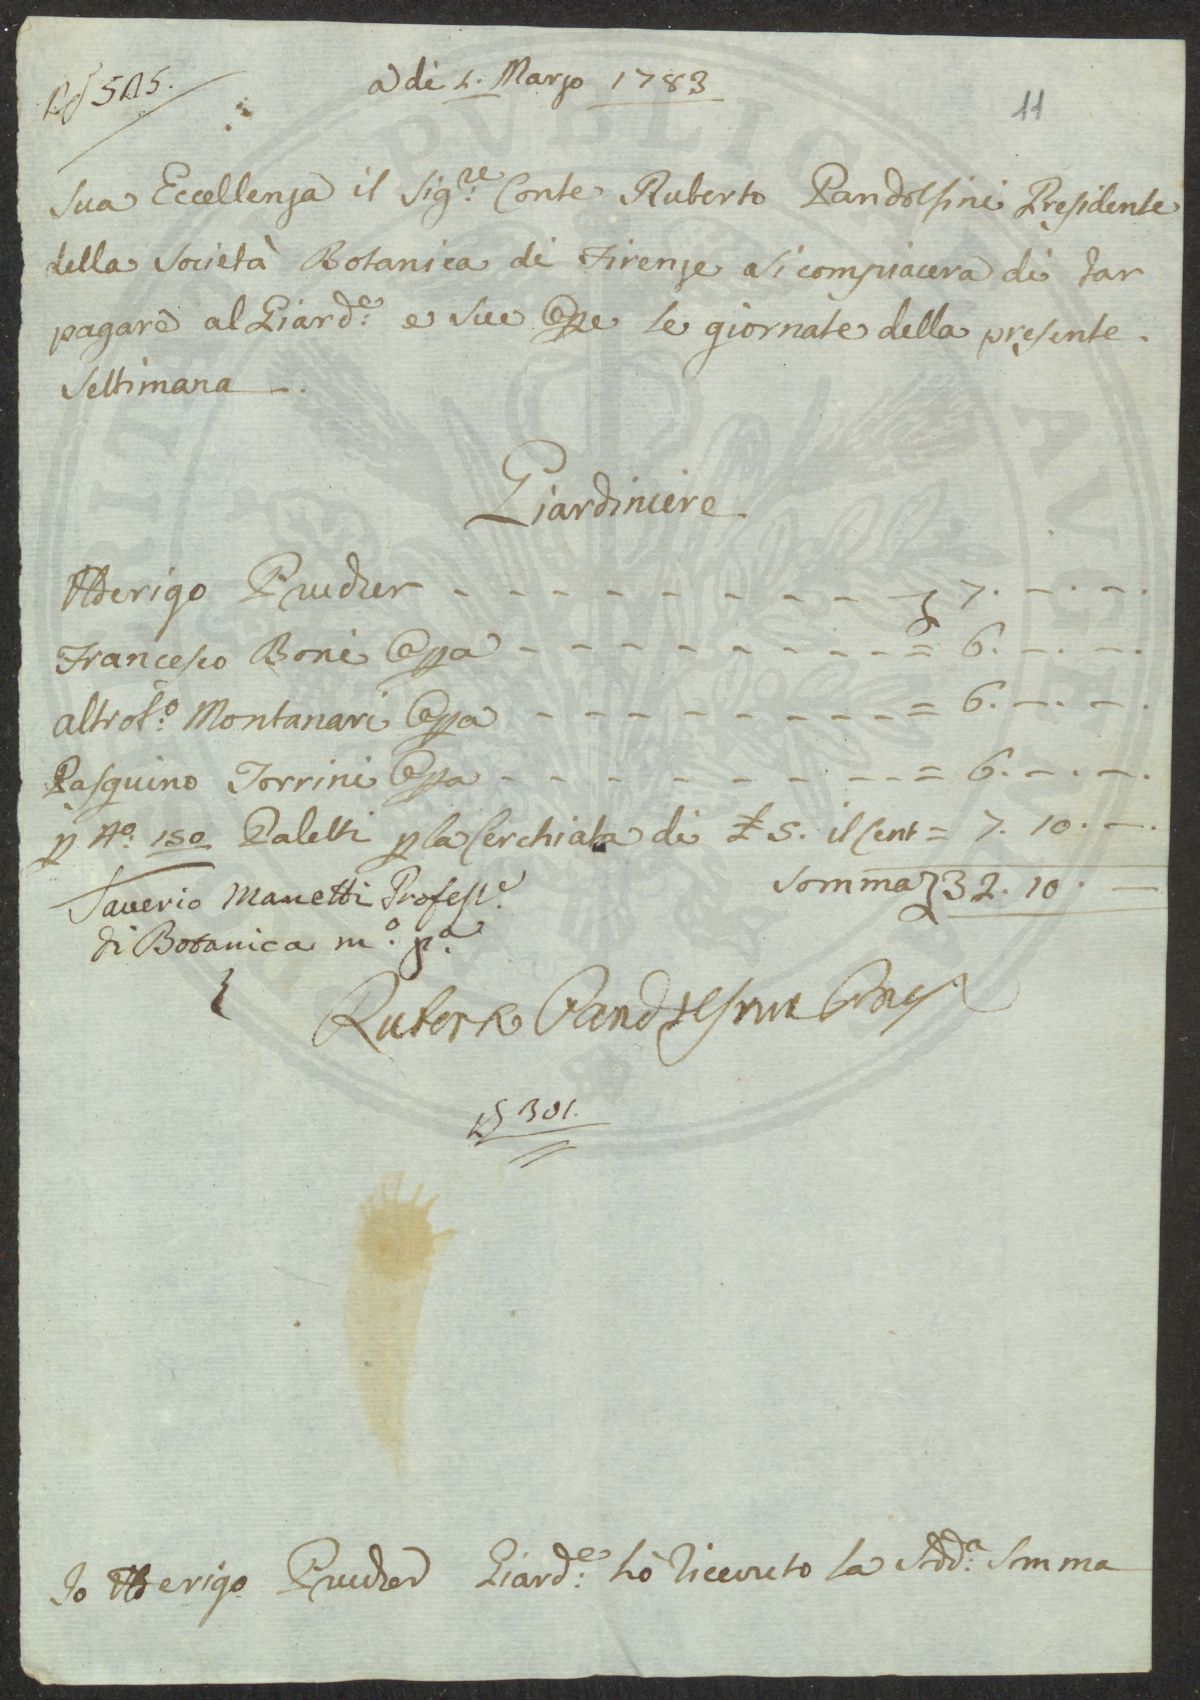 a di 1. Marzo 1783
11
Sua Eccellenza il Sig.re Conte Ruberto Pandolfini Presidente
della Società Botanica di Firenze si compiacerà di far
pagare al Giard.e e sue Opre le giornate della presente
Settimana
Giardiniere
Herigo Prucker 7. —. —.
Francesco Boni Opa = 6. —. —.
altro f.o Montanari Opa = 6. —. —.
Pasquino Torrini Opa = 6. —. —.
p N.o 150 Paletti p la Cerchiata di £ 5. il Cent = 7. 10. —.
Somma 32. 10. —
Saverio Manetti Profess.e
di Botanica m.o p.a
Ruberto Pandolfini Pres
301.
Io Herigo Prucker Giard.e hò riceuto la Sudd.a Somma
PVBLICAE
AVGENDAE